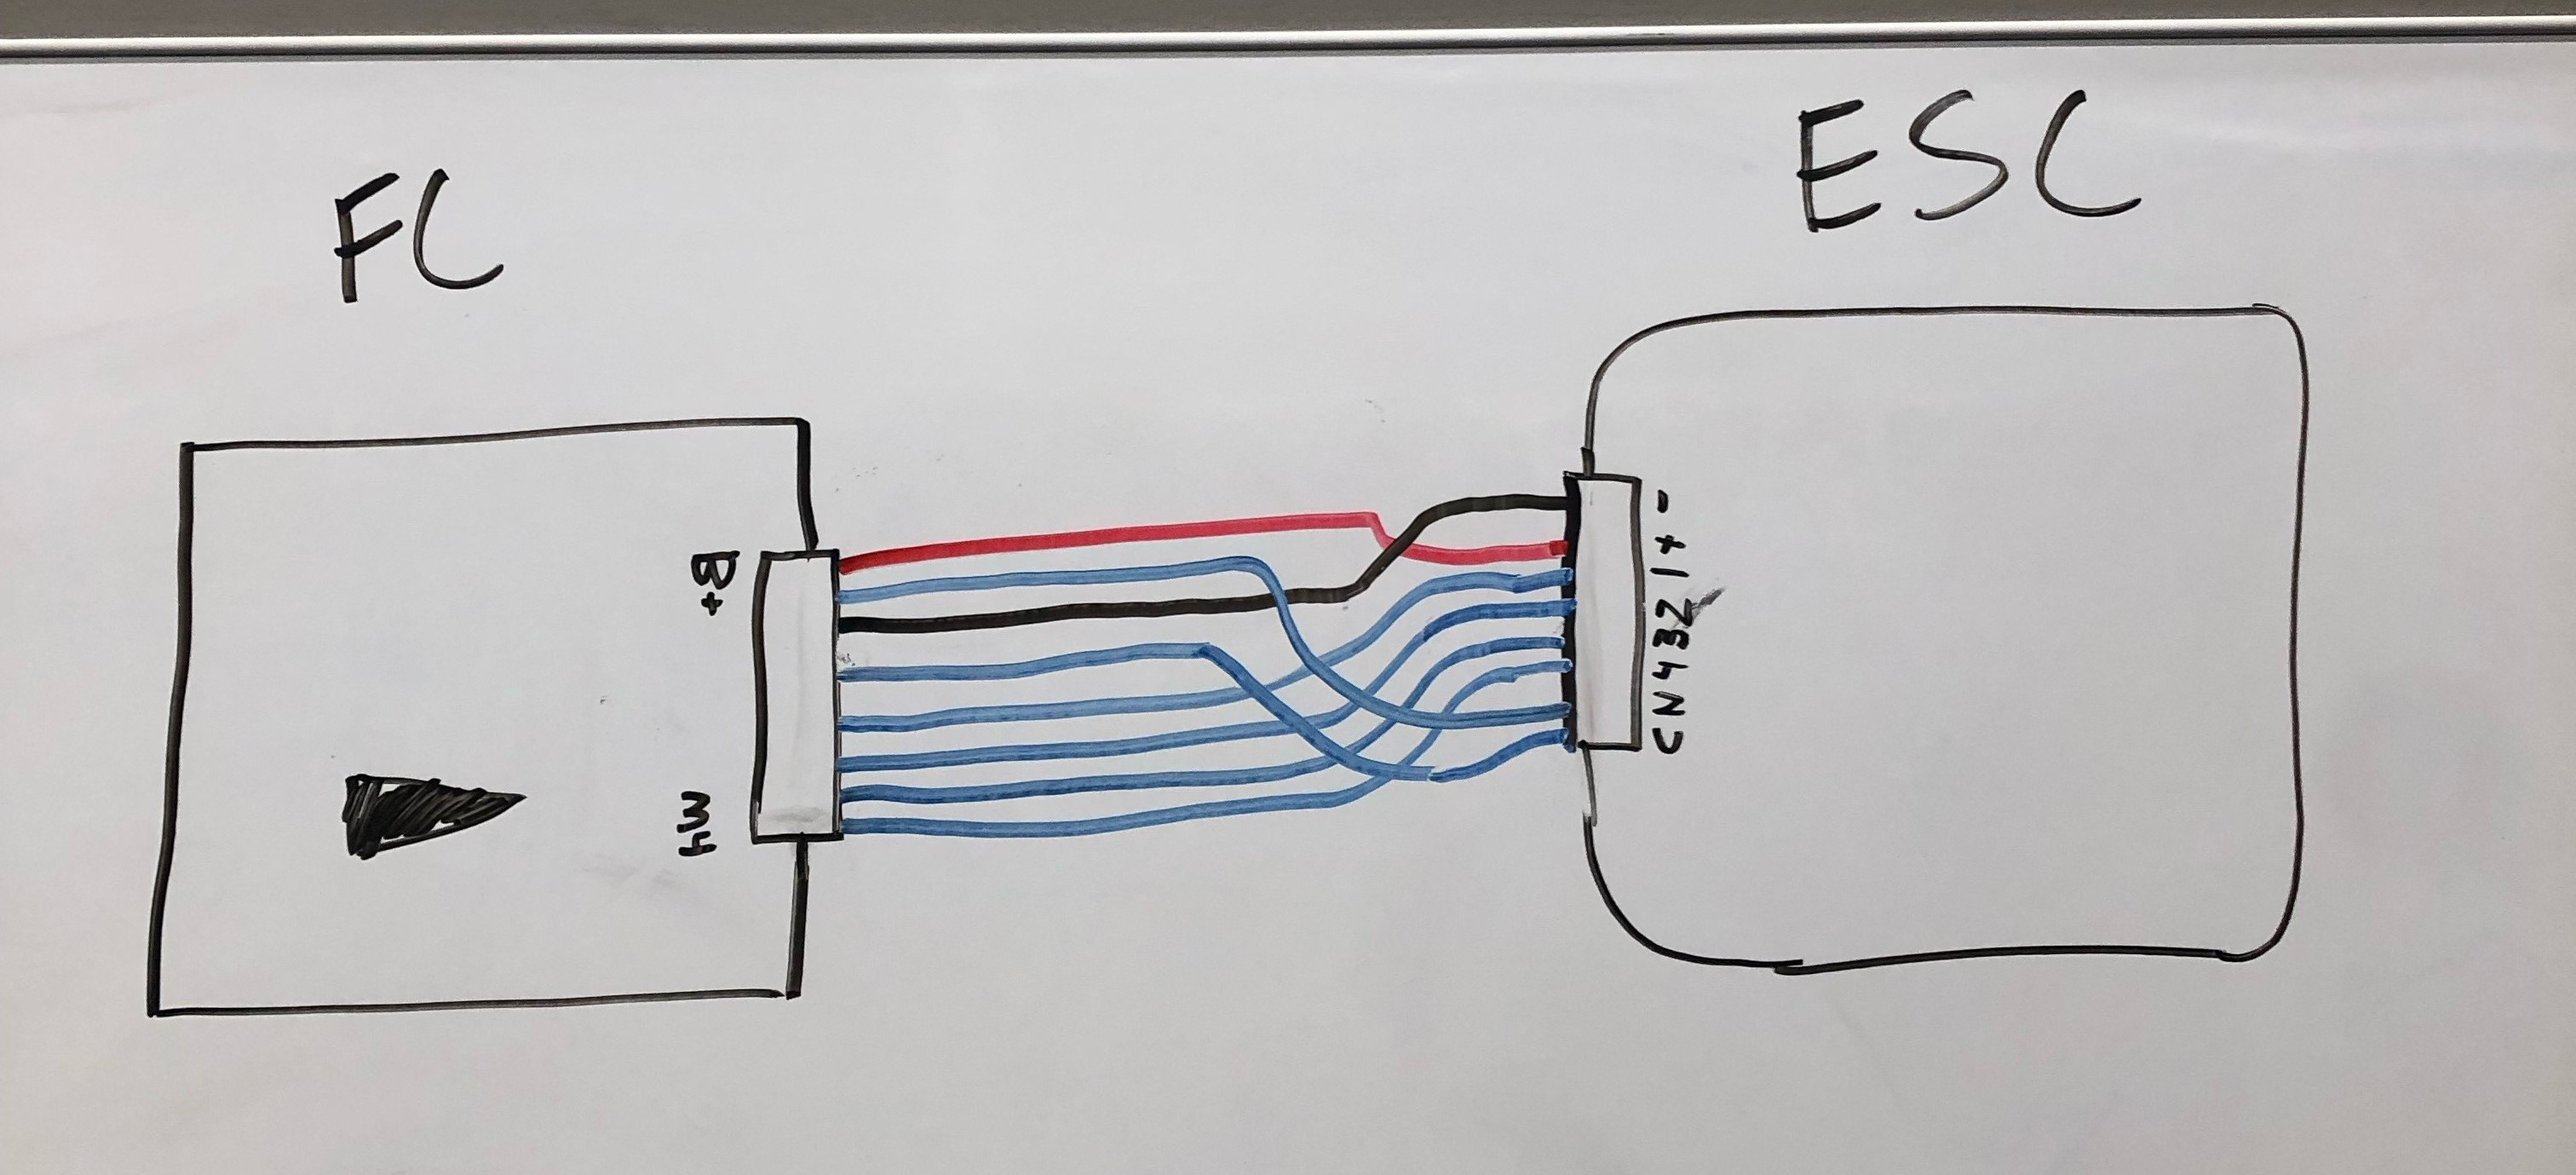 FC
ESC
B+
M4
- + 1 2 3 4 N C